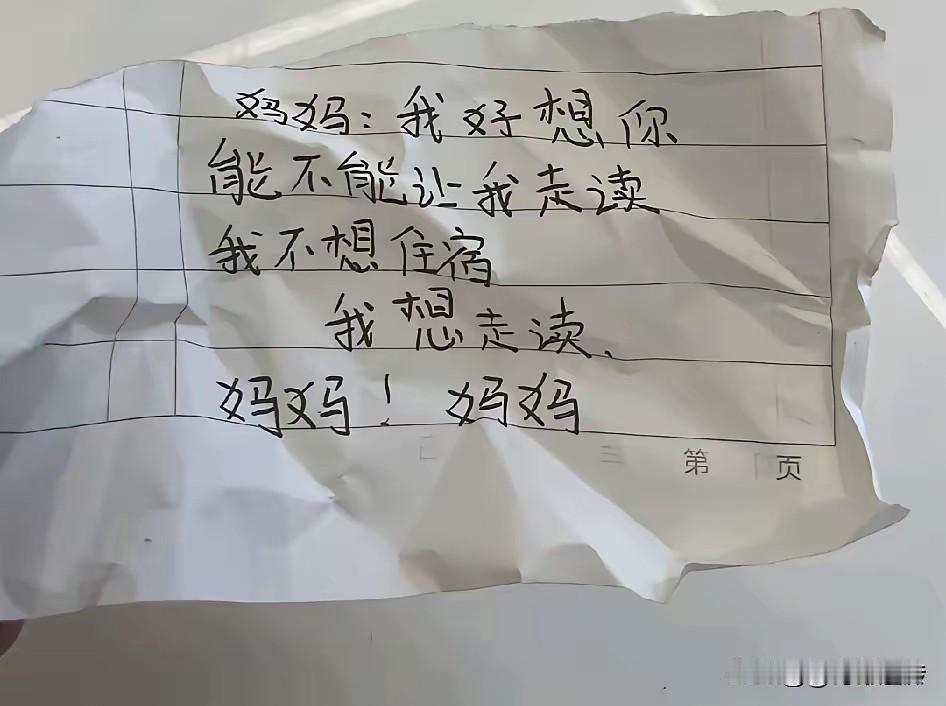 妈妈：我好想你
能不能让我走读
我不想住宿
我想走读、
妈妈！妈妈
第 页